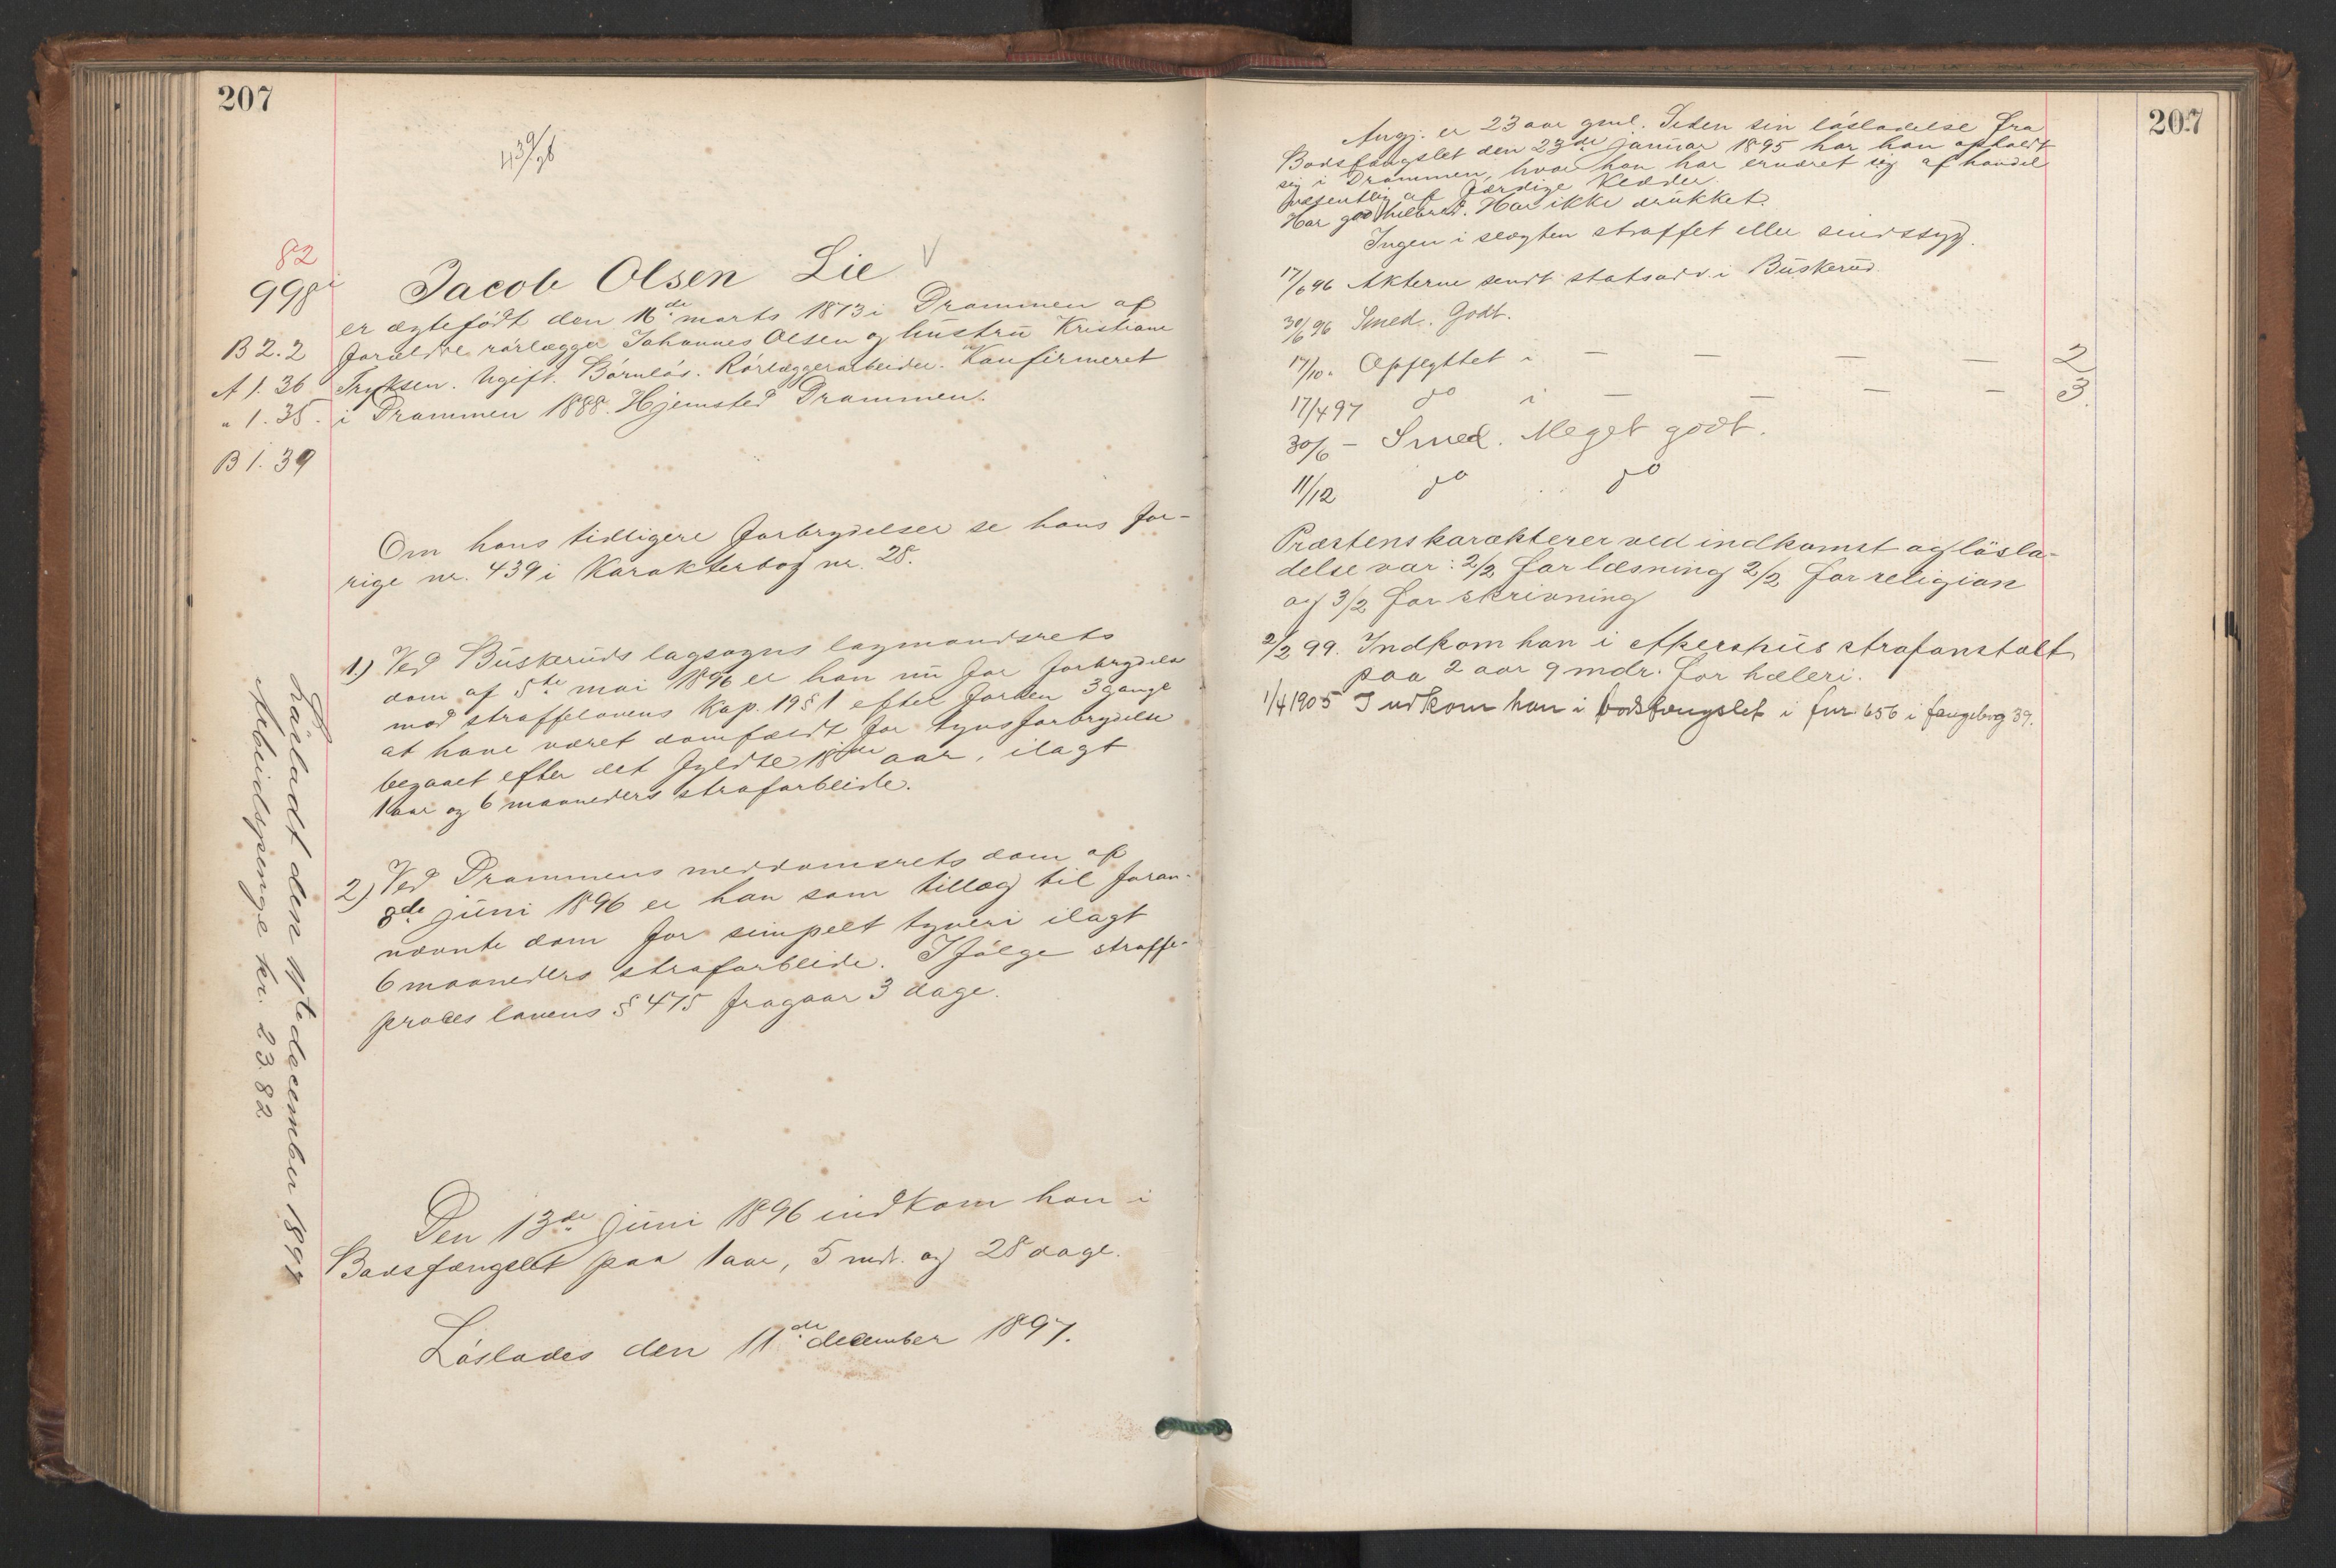 207
439/96
82
998
Jacob Olsen Lie
er ægtefødt den 16de marts 1873 i Drammen af
B 2.2
forældre rørlægger Johannes Olsen og hustru Kristiane
A 1.36
Ugift. Børnløs. Rørlæggerarbeider. Konfirmeret
" 1.35.
i Drammen 1888. Hjemsted Drammen.
B 1.39
Om hans tidligere forbrydelser se hans for-
rige nr. 439 i Karakterbog nr. 28.
1.) Ved Buskeruds lagsogns lagmandsrets
dom af 5te mai 1896 er han nu for forbrydelse
mod straffelovens Kap. 19 § 1 efter forhen 3 gange
at have været domfældt for tyvsforbrydelse
begaaet efter det fyldte 18de aar, ilagt
1 aar og 6 maaneders strafarbeide.
2) Ved Drammens meddomsrets dom af
8de juni 1896 er han som tillæg til foran-
nævnte dom for simpelt tyveri ilagt
6 maaneders strafarbeide. Ifølge straffe-
proces lovens § 475 fragaar 3 dage.
Den 13de juni 1896 indkom han i
Bodsfængslet paa 1 aar, 5 mdr. og 28 dage.
Løslades den 11de december 1897.
Løsladt den 11te december 1897
Arbeidspenge kr. 23.82
207
Angj. er 23 aar gml. Siden sin løsladelse fra
Bodsfængslet den 23de januar 1895 har han opholdt
sig i Drammen, hvor han har ernæret sig af handel
væsentlig af færdige Klæder.
Har god helbred. Har ikke drukket.
Ingen i slægten straffet eller sindssyg.
17/6 96 Akterne sendt statsadv. i Buskerud.
30/6 96 Smed. Godt.
17/10. Opflyttet i — — — — 2
17/4 97 do i — — — — 3.
30/6 – Smed. Meget godt.
11/12 do .. do
Præstens karakterer ved indkomst og løsla-
delse var: 2/2 for læsning 2/2 for religion
og 3/2 for skrivning
2/2 99. Indkom han i Akershus strafanstalt
paa 2 aar 9 mdr. for hæleri.
1/4 1905 Indkom han i bodsfængslet i fnr. 656 i fangebog 39.